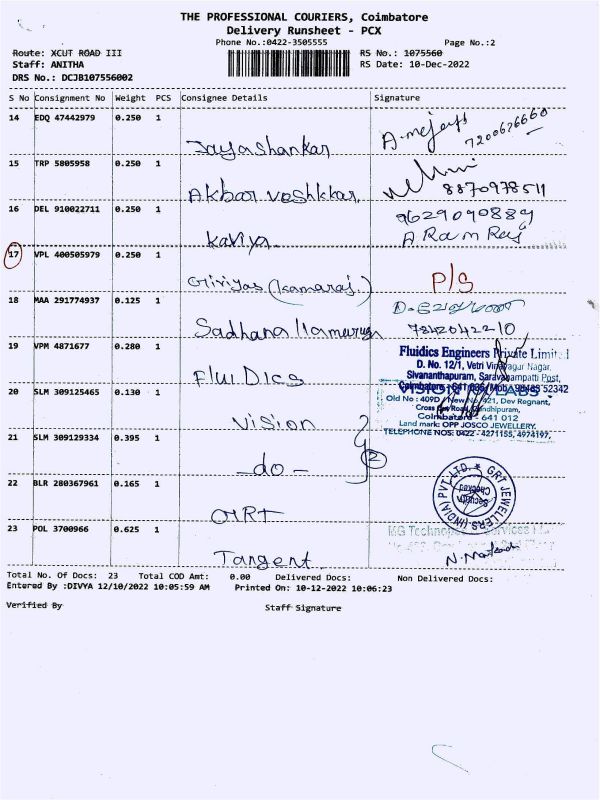 THE PROFESSIONAL COURIERS, Coimbatore
Delivery Runsheet - PCX
Phone No.:0422-3505555 Page No.:2
Route: XCUT ROAD III RS No.: 1075560
Staff: ANITHA RS Date: 10-Dec-2022
DRS No.: DCJB107556002
S No Consignment No Weight PCS Consignee Details Signature
14 EDQ 47442979 0.250 1
Jayashankar
7200676660
15 TRP 5805958 0.250 1
Akbar
8870978511
16 DEL 910022711 0.250 1
Kaviya
9629090889
A. Ram Raj
17 VPL 400505979 0.250 1
Giriyas (Kamaraj.)
P/S
18 MAA 291774937 0.125 1
Sadhana
7842042210
19 VPM 4871677 0.280 1
FluiDics
Fluidics Engineers Private Limited
D. No. 12/1, Vetri Vinayagar Nagar,
Sivananthapuram, Saravanampatti Post,
Coimbatore - 641 035, Mob: 98483 52342
20 SLM 309125465 0.130 1
Vision
VISION LABS
Old No : 409D / New No 421, Dev Regnant,
Cross Cut Road, Gandhipuram,
Coimbatore - 641 012
Land mark: OPP JOSCO JEWELLERY.
TELEPHONE NOS: 0422 - 4271155, 4974197,
21 SLM 309129334 0.395 1
- do -
2
22 BLR 280367961 0.165 1
GRT
GRT JEWELLERS (INDIA) PVT LTD.
Security
Checked
23 POL 3700966 0.625 1
Tangent
MG Services
Total No. Of Docs: 23 Total COD Amt: 0.00 Delivered Docs: Non Delivered Docs:
Entered By :DIVYA 12/10/2022 10:05:59 AM Printed On: 10-12-2022 10:06:23
Verified By Staff Signature